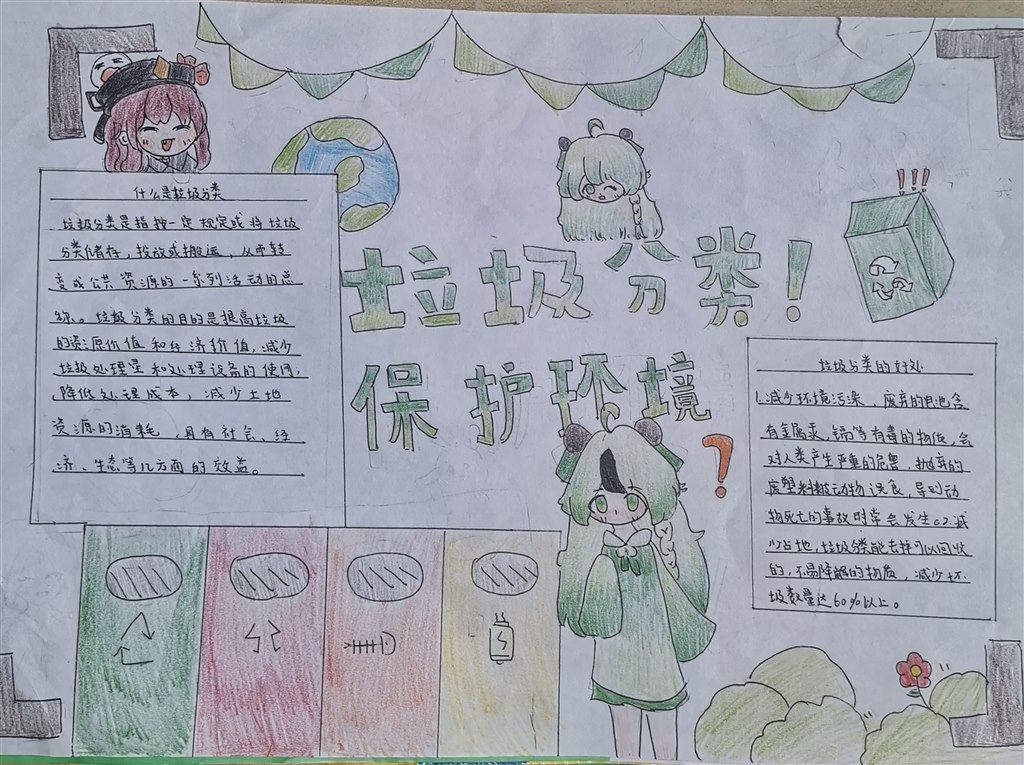 什么是垃圾分类
垃圾分类是指按一定规定或将垃圾
分类储存，投放或搬运，从而转
变成公共资源的一系列活动的总
称。垃圾分类的目的是提高垃圾
的资源价值和经济价值，减少
垃圾处理量和处理设备的使用，
降低处理成本，减少土地
资源的消耗，具有社会、经
济、生态等几方面的效益。
垃圾分类！
保护环境
?
!!!
垃圾分类的好处
1.减少环境污染，废弃的电池含
有金属汞，镉等有毒的物质，会
对人类产生严重的危害，抛弃的
废塑料被动物误食，导致动
物死亡的事故时常会发生。2.减
少占地，垃圾分类能去掉可以回收
的，不易降解的物质，减少垃
圾数量达60%以上。